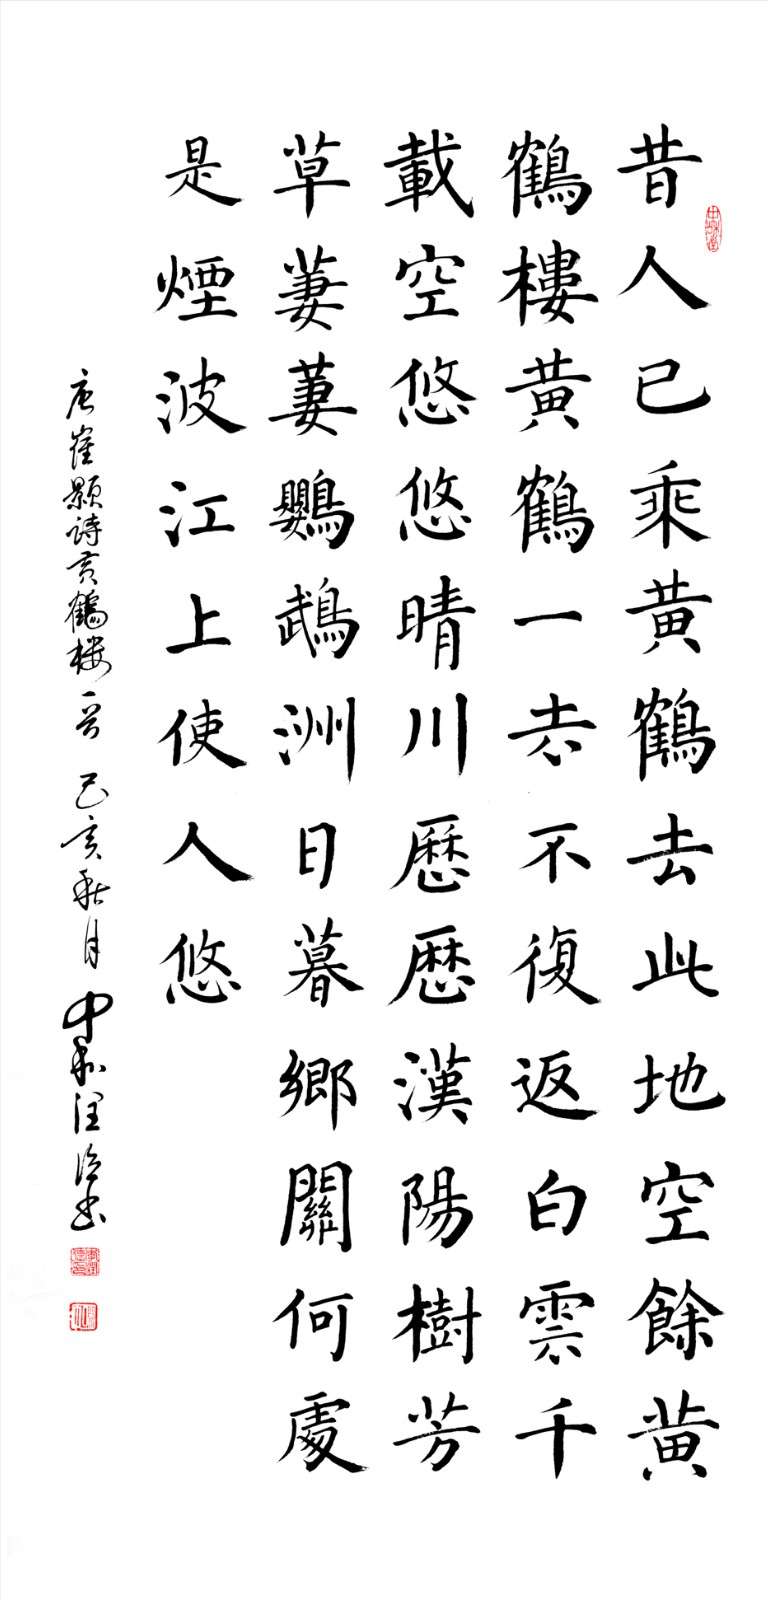 昔人已乘黃鶴去此地空餘黃
鶴樓黃鶴一去不復返白雲千
載空悠悠晴川歷歷漢陽樹芳
草萋萋鸚鵡洲日暮鄉關何處
是煙波江上使人悠
唐崔顥詩黃鶴樓一首 己亥秋月 中和 書